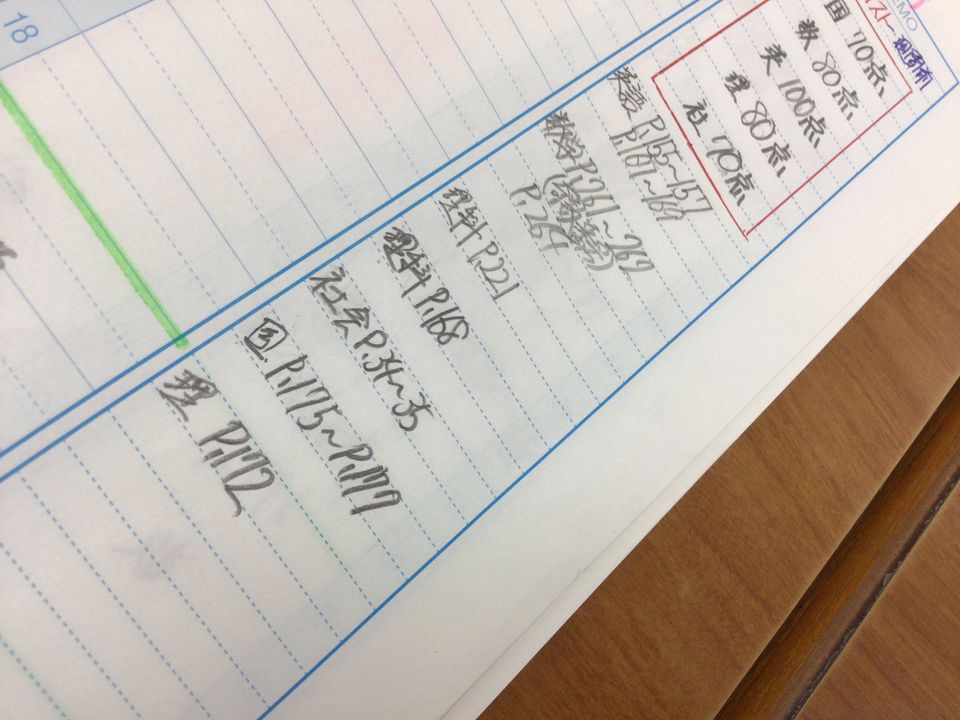 18
EMO
テスト一週間前
国 70点
数 80点
英 100点
理 80点
社 70点
英語 P.155~157
P.161~169
数学 P.261~262
P.264
理科 P.221
理科 P.168
社会 P.34~35
国 P.175~P.177
理 P.172